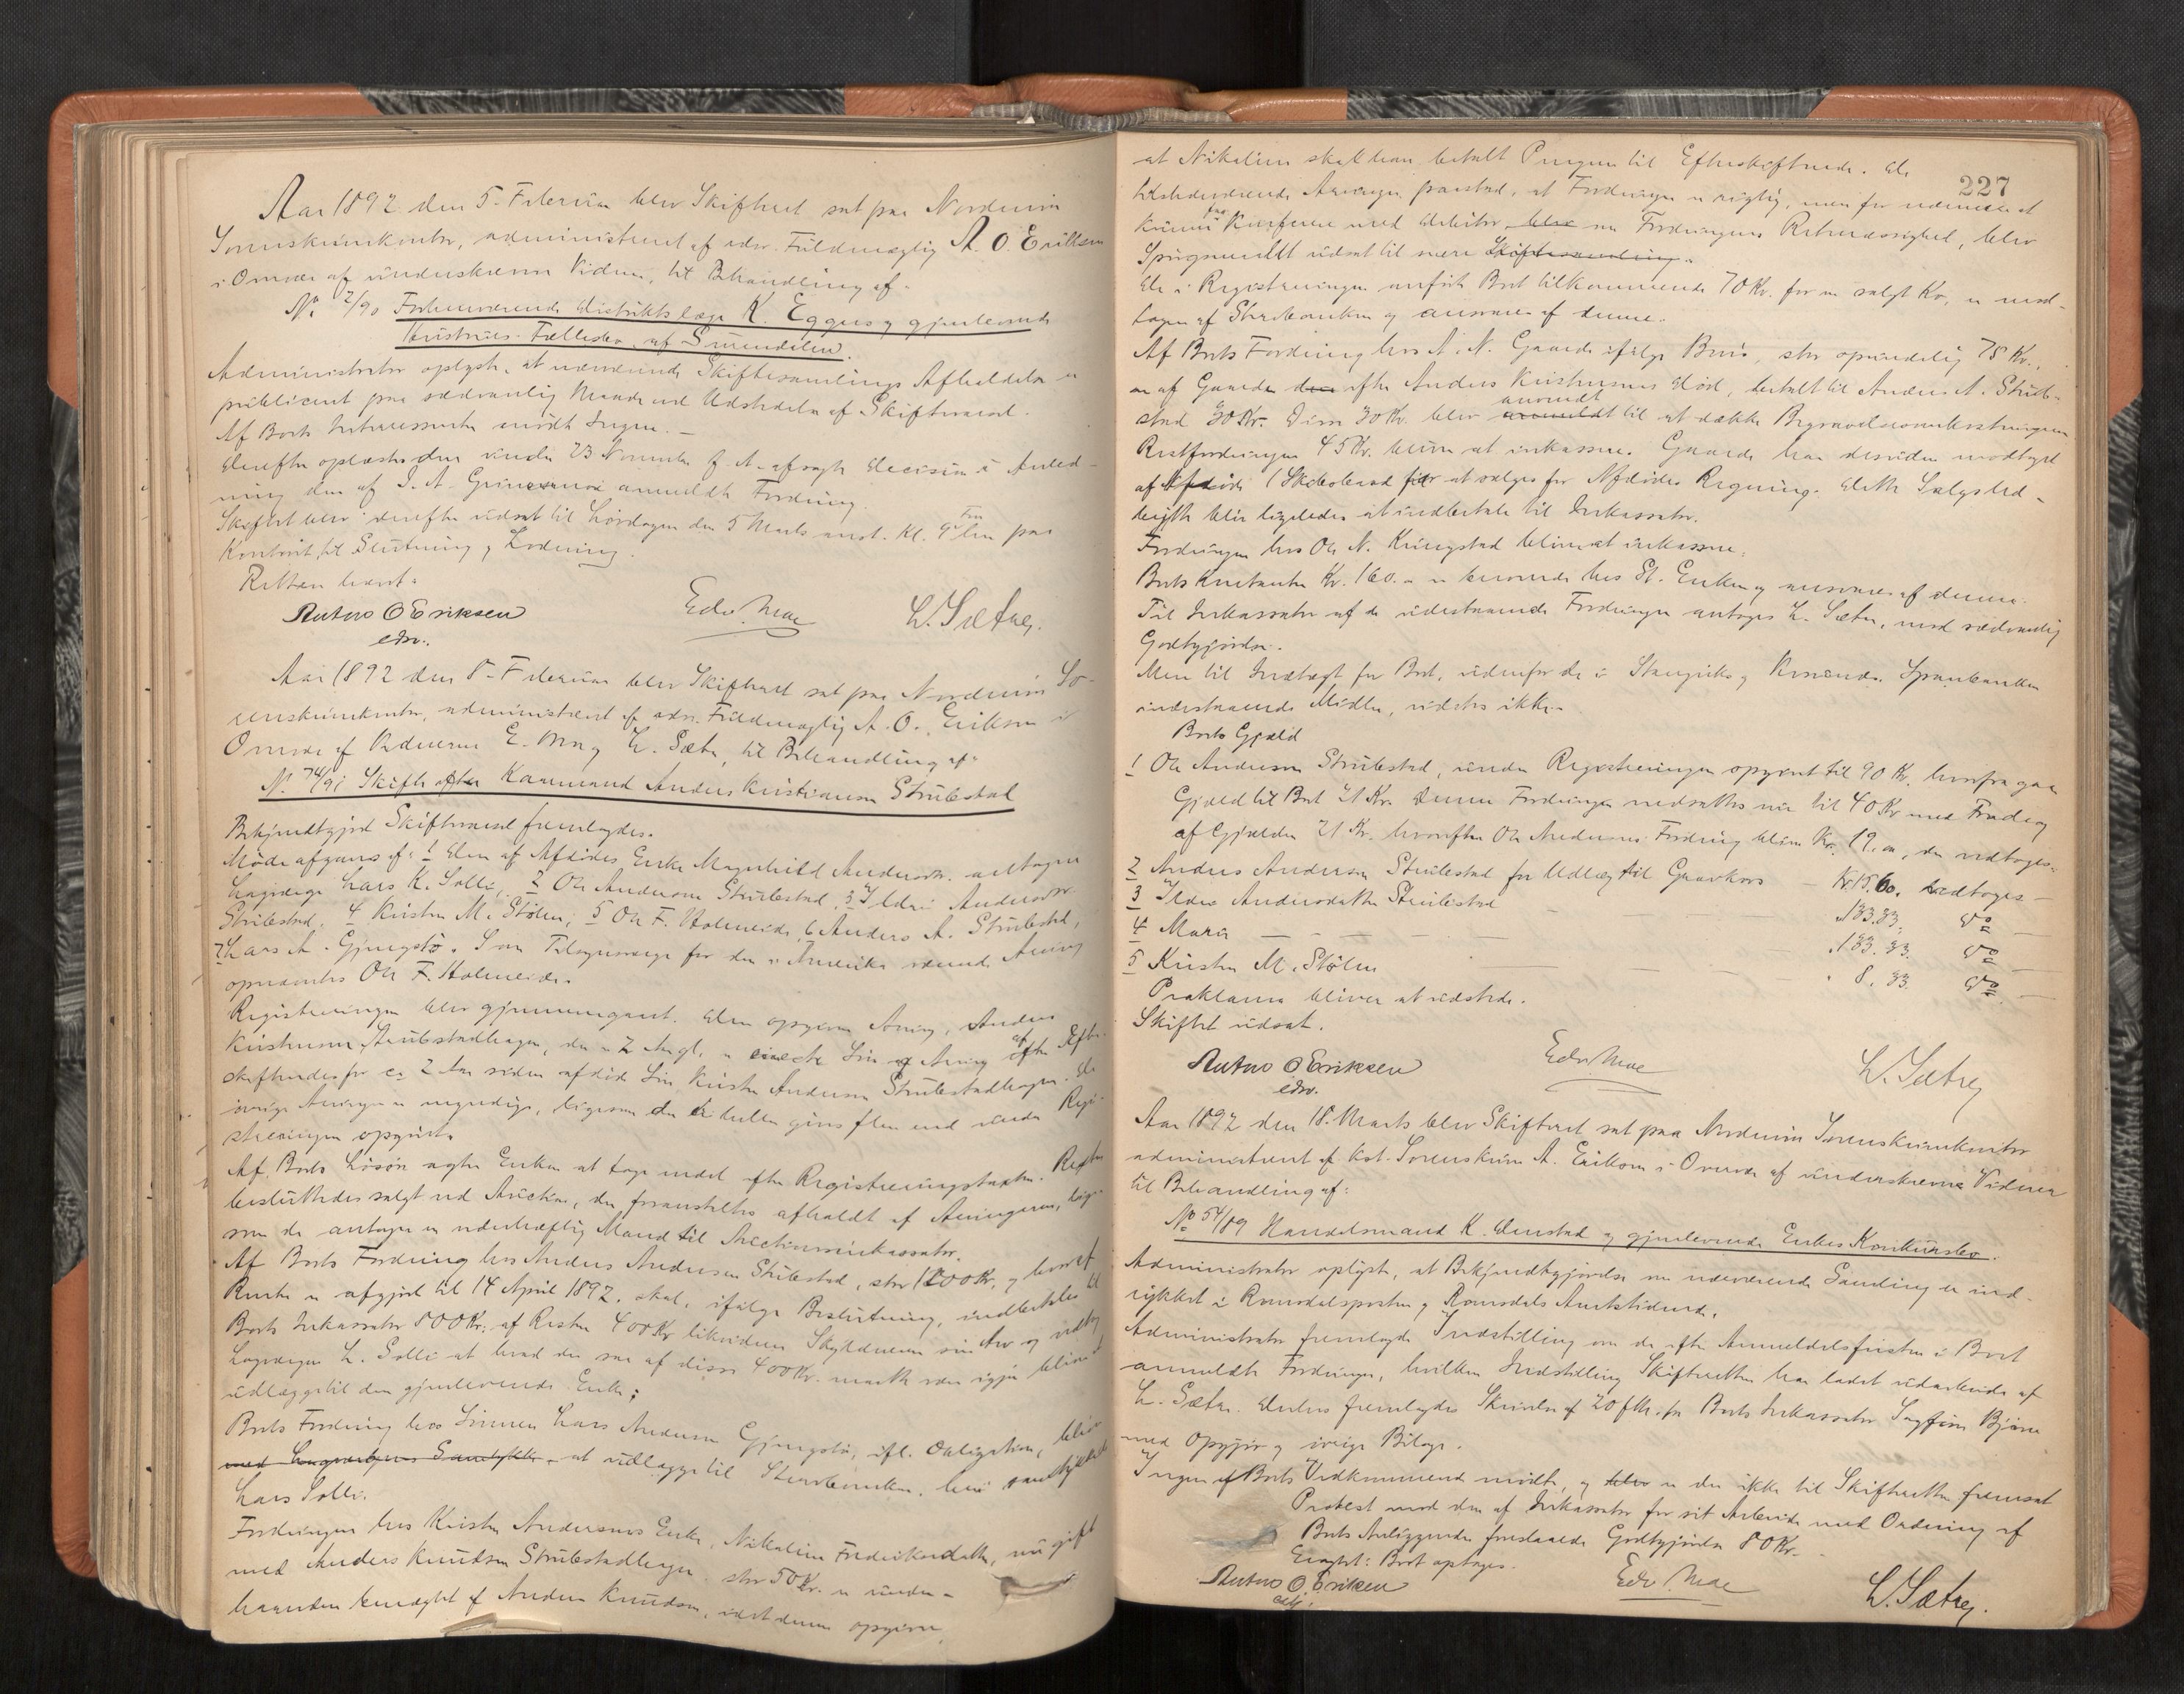 Aar 1892 den 5. Februar blev Skifteret sat paa Nordmør
Sorenskriverkontor, administreret af edsv. Fuldmægtig A. O. Eriksen
i Overvær af underskrevne Vidner, til Behandling af
No. 2/90 Forhenværende Distriktslæge K. Eggens og gjenlevende
Hustrues Fællesbo af Surendalen.
Administrator oplyste, at nærværende Skiftesamlings Afholdelse er
publiceret paa sædvanlig Maade ved Udstedelse af Skiftevarsel.
Af Boets Interessenter mødte Ingen.
Derefter oplæstes den under 23 November f. A. afsagte Decision i Anled-
ning den af I. A. anmeldte Fordring.
Skiftet blev derefter udsat til Lørdagen den 5 Marts anst. Kl. 9 Fm paa
Kontoret, til Slutning og Lodning.
Retten hævet.
Antno O Eriksen Edv. Moe L. Sætrey.
edsv.
Aar 1892 den 8. Februar blev Skifteret sat paa Nordmør So-
renskriverkontor, administreret af edsv. Fuldmægtig A. O. Eriksen i
Overvær af Vidnerne E. Moe og L. Sæter, til Behandling af
No. 74/91 Skifte efter Kaarmand Anders Kristiansen Strubstad
Bekjendtgjort Skiftevarsel fremlagdes.
Møde afgaves af: 1 Den af Afdødes Enke Magnhild Andersdtr. antagne
Laugværge Lars K. Solli, 2 Ole Andersen Strubstad, 3 Ildri Andersdtr
Strubstad, 4 Kirsten M. Stølen, 5 Ole F. Holmeide, 6 Anders A. Strubstad,
7 Lars A. Gjengstø. Som Tilsynsværge for den i Amerika værende Arving
opnævntes Ole F. Holmeide.
Registreringen blev gjennemgaaet. Den opgivne Arving, Anders
Kristensen Strubstadhagen, der er 2 Aar gl., er eneste Søn af Arving efter Efter-
skiftendes for ca 2 Aar siden afdøde Søn Kristen Andersen Strubstadhagen. De
øvrige Arvinger er myndige, ligesom der ei heller gives flere end under Regi-
streringen opgivet.
Af Boets Løsøre agter Enken at tage endel efter Registreringstaxten. Resten
besluttedes solgt ved Auktion, der foranstaltes afholdt af Arvingerne, lige-
som de antager en vederhæftig Mand til Auctionsinkassator.
Af Boets Fordring hos Anders Andersen Strubstad, stor 1200 Kr, og hvoraf
Rente er afgjort til 14 April 1892, skal, ifølge Beslutning, indbetales til
Boets Inkassator 800 Kr; af Resten 400 Kr likviderer Skyldneren sin Arv og vedtog
Laugværgen L. Solli at hvad der saa af disse 400 Kr. maatte være igjen bliver
udlægge til den gjenlevende Enke;
Boets Fordring hos Sønnen Lars Andersen Gjengstø, ifl. Obligation, bliver
med Laugværgens Samtykke at udlægge til Sterbenken,
Lars Solli.
Fordringen hos Kristen Andersens Enke, Nikoline Fredriksdatter, nu gift
med Anders Knudsen Strubstadhagen stor 50 Kr. er under-
haanden benægtet af Anders Knudsen, idet denne opgiver
227
at Nikoline skal have betalt Pengene til Efterskiftende. De
tilstedeværende Arvinger paastod, at Fordringen er rigtig, men for nærmere at
kunne faa Konferere med Debitor blev om Fordringens Retmæssighed, blev
Spørgsmaalet udsat til næste Skiftesamling.
De i Registreringen anførte Boet tilkommende 70 Kr. for en solgt Ko, er mod-
tagen af Sterbenken og ansvares af denne.
Af Boets Fordring hos A. N. Gaarde ifølge Brev, stor oprindelig 75 Kr.,
er af Gaarde den efter Anders Kristensens Død, betalt til Anders A. Strub-
stad 30 Kr. Disse 30 Kr. blev anmeldt anvendt til at dække Begravelsesomkostningerne
Restfordringen 45 Kr. bliver at inkassere. Gaarde har desuden modtaget
af Afdøde 1 for at sælges for Afdødes Regning. Dette Salgsud-
bytte bliver ligeledes at indbetale til Inkassator.
Fordringen hos Ole N. Kringstad bliver at inkassere.
Boets Kontanter Kr. 160. - er beroende hos St. Enken og ansvares af denne.
Til Inkassator af de udestaaende Fordringer antoges L. Sæter, mod sædvanlig
Godtgjørelse.
Mere til Indtægt for Boet, udenfor de i Stangvik og Sparebanker
indestaaende Midler, vidstes ikke.
Boets Gjæld
1 Ole Andersen Strubstad, under Registreringen opgivet til 90 Kr. hvorfra gaar
Gjæld til Boet 21 Kr. Denne Fordringen nedsattes nu til 40 Kr med Fradrag
af Gjælden 21 Kr. hvorefter Ole Andersens Fordring bliver Kr. 19.00, der vedtoges.
2 Anders Andersen Strubstad for Udlæg til Gravkors - Kr. 15.60. vedtoges -
3 Ildri Andersdatter Strubstad - - " 133.33. do -
4 Marit - - - " 133.33. do -
5 Kirsten M. Stølen - - " 8.33. do -
Proklama bliver at udstede.
Skiftet udsat.
Antno O Eriksen Edv Moe L. Sætrey
edsv.
Aar 1892 den 18. Marts blev Skifteret sat paa Nordmør Sorenskriverkontor
administreret af Kst. Sorenskriver A. Eriksen i Overvær af underskrevne Vidner
til Behandling af:
No 54/89 Handelsmand K. Ørnstad og gjenlevende Enkes Konkursbo.
Administrator oplyste, at Bekjendtgjørelse om nærværende Samling er ind-
rykket i Romsdalsposten og Romsdals Amtstidende.
Administrator fremlagde Indstilling om de efter Anmeldelsesfristen i Boet
anmeldte Fordringer, hvilken Indstilling Skifteretten har ladet udarbeide af
L. Sæter. Derhos fremlagdes Skrivelse af 20 f.M. fra Boets Inkassator
med Opgjør og øvrige Bilage.
Ingen af Boets Vedkommende mødte, og blev er der ikke til Skifteretten fremsat
Protest mod den af Inkassator for sit Arbeide med Ordning af
Boets Anliggender foreslaaede Godtgjørelse 80 Kr.
Eragtet: Boet optages.
Antno O. Eriksen Edv. Moe L. Sætrey.